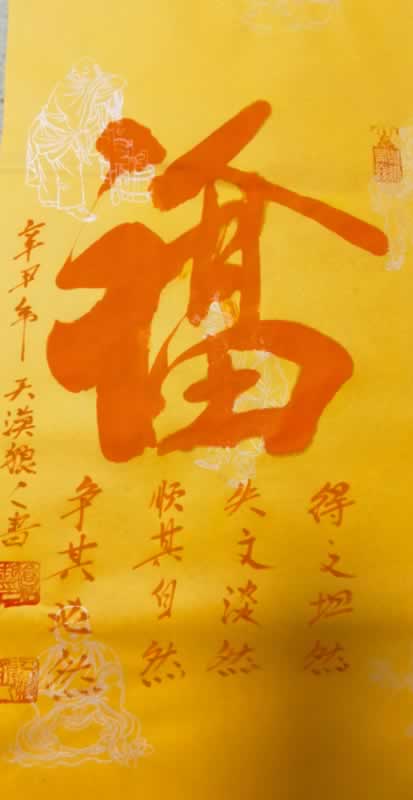 福
得之坦然
失之淡然
顺其自然
争其必然
辛丑年 天漠狼人书